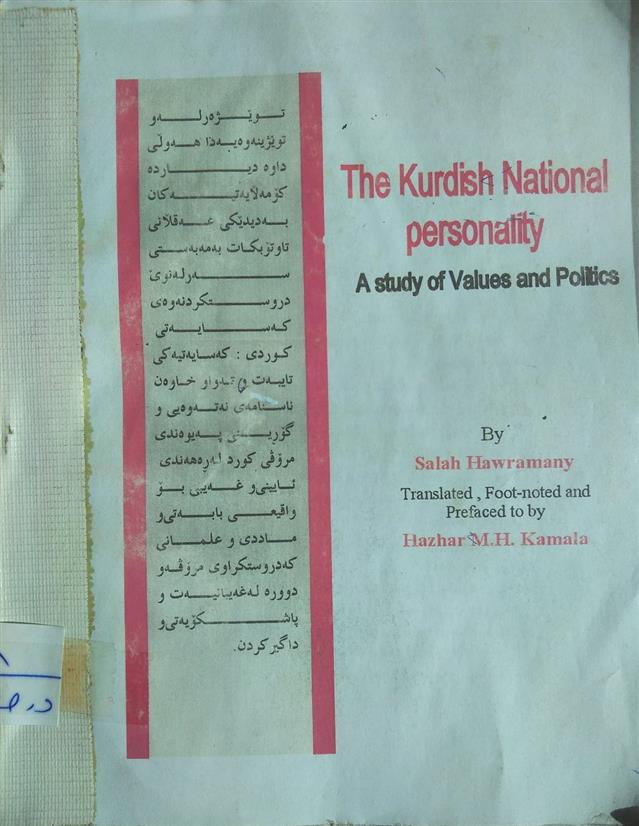 تـــوێـــژەر لـــەو
توێژینەوەیەدا هـەوڵی
داوە دیـــــاردە
کۆمەڵایەتیـــەکان
بـەدیدێکی عـــەقڵانی
تاوتۆبکات بەمەبەستی
ســـــەرلەنوێ
دروستکردنەوەی
کـەســـایـــەتی
کوردی : کەسایەتیەکی
تایبەت و تەواو خاوەن
ناسنامەی نەتەوەیی و
گۆڕیـــنی پەیوەندی
مرۆڤی کورد لەڕەهەندی
ئایینی و غەیبی بـۆ
واقیعـی بابـەتی و
مـاددی و علمـانی
کەدروستکراوی مرۆڤەو
دوورە لەغەیبانیـەت و
پاشـــکۆیەتی و
داگیرکردن.
The Kurdish National
personality
A study of Values and Politics
By
Salah Hawramany
Translated , Foot-noted and
Prefaced to by
Hazhar M.H. Kamala